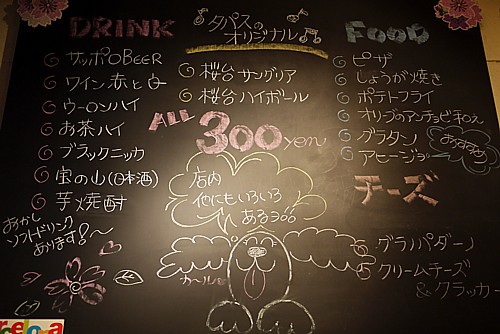 DRINK
サッポロBEER
ワイン赤と白
ウーロンハイ
お茶ハイ
ブラックニッカ
宝の山(日本酒)
芋焼酎
おかし
ソフトドリンク
あります!〜
タパスの
オリジナル
桜台サングリア
桜台ハイボール
ALL 300yen
店内
他にもいろいろ
あるヨ
Food
ピザ
しょうが焼き
ポテトフライ
オリーブのアンチョビ和え
グラタン
アヒージョ
おすすめ
チーズ
グラノパダーノ
クリームチーズ
&クラッカー